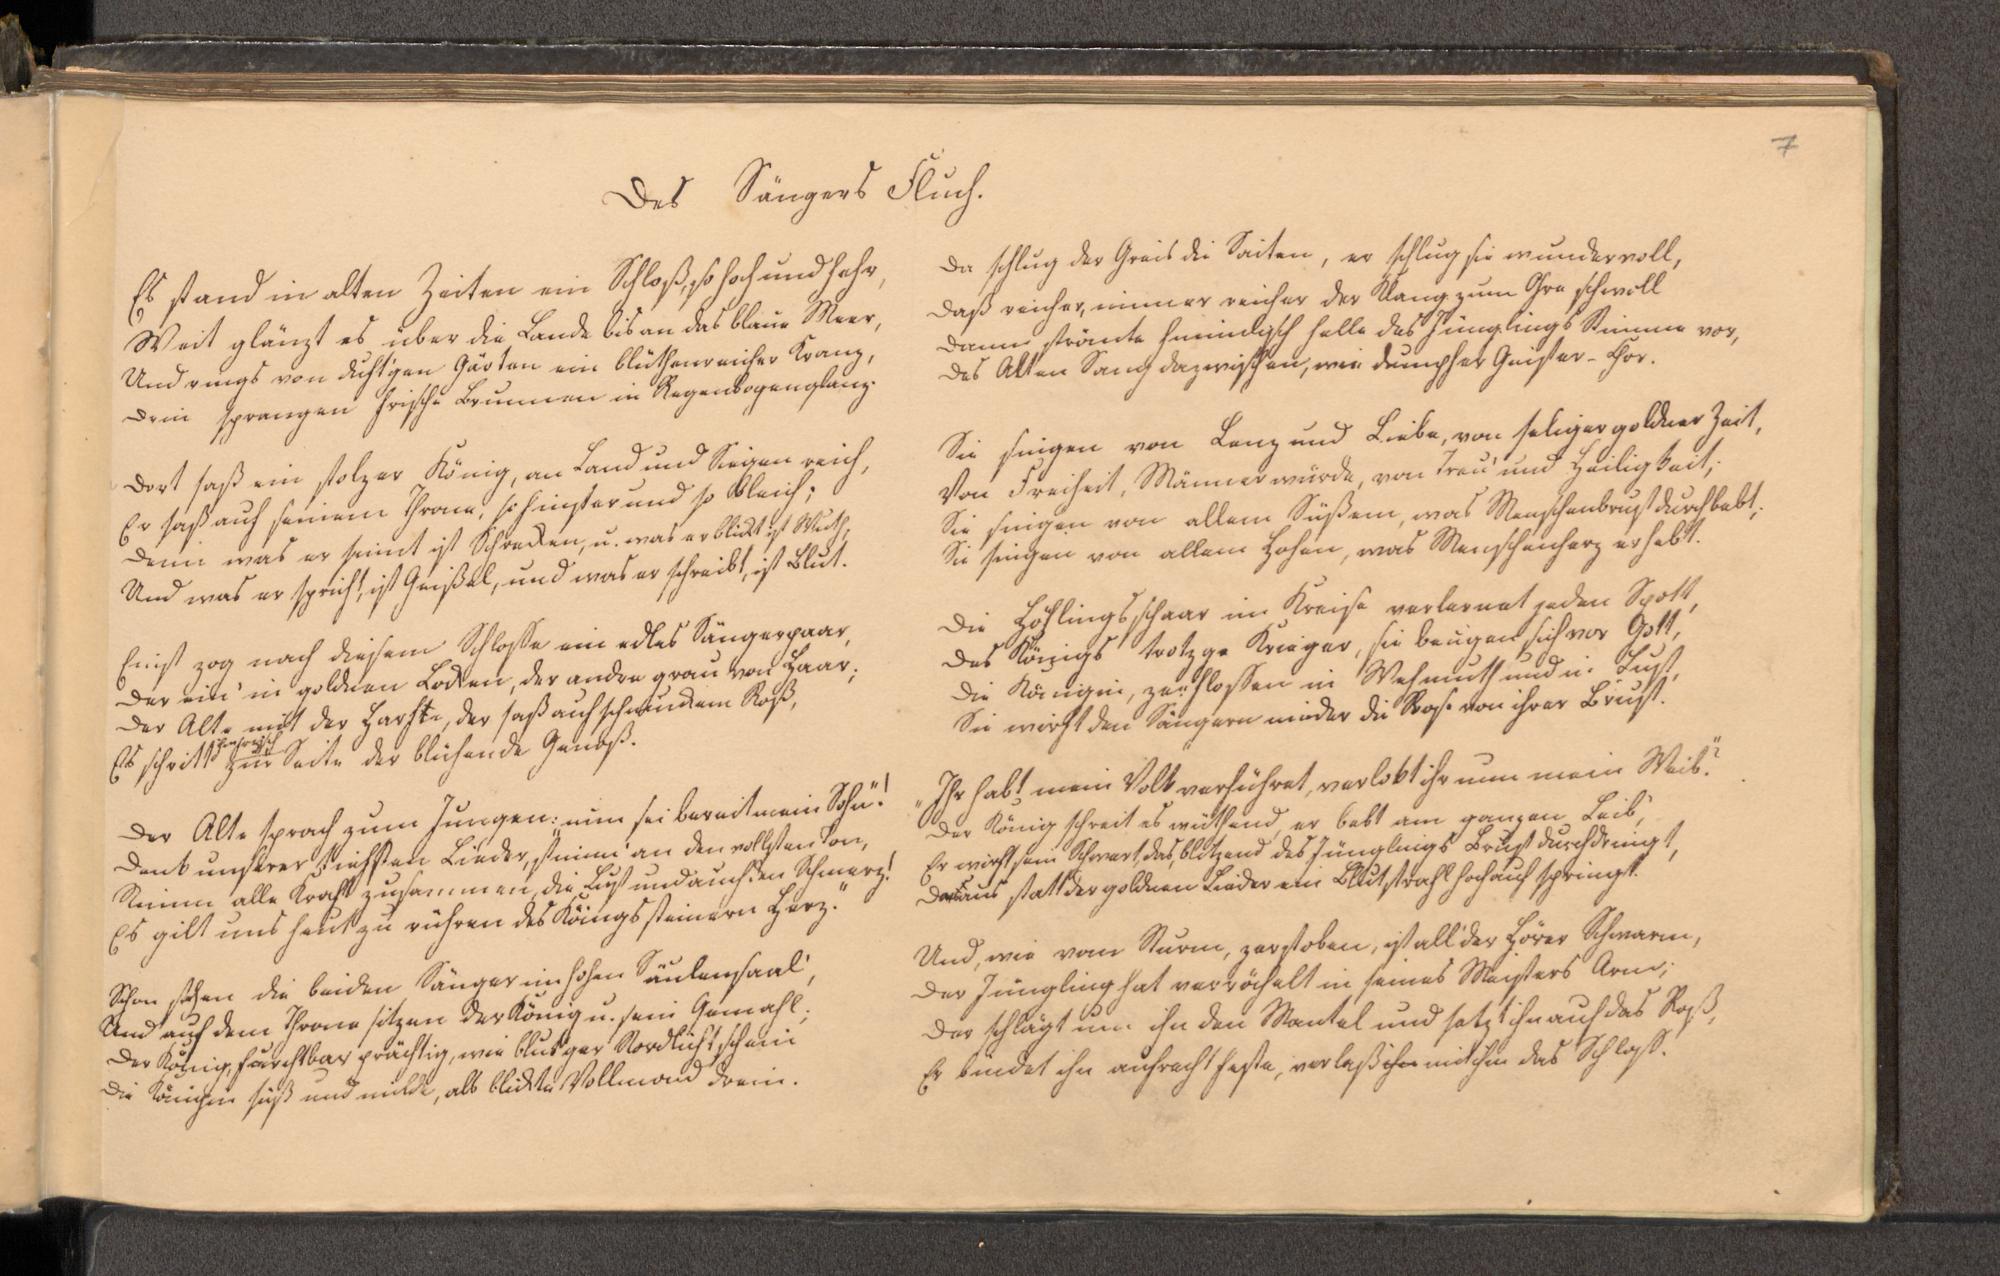 7
Des Sängers Fluch.
Es stand in alten Zeiten ein Schloß, so hoch und hehr,
Weit glänzt es über die Lande bis an das blaue Meer,
Und rings von duft'gen Gärten ein blüthenreicher Kranz,
Drin sprangen frische Brunnen in Regenbogenglanz.
Dort saß ein stolzer König, an Land und Siegen reich,
Er saß auf seinem Throne, so finster und so bleich;
Denn was er sinnt ist Schrecken, u. was er blickt ist Wuth,
Und was er spricht, ist Geißel, und was er schreibt, ist Blut.
Einst zog nach diesem Schlosse ein edles Sängerpaar,
Der ein' in goldnen Locken, der andre grau von Haar;
Der Alte mit der Harfe, der saß auf schmuckem Roß,
Es schritt ihm frisch zur Seite der blühende Genoß.
Der Alte sprach zum Jungen: nun sei bereit mein Sohn"!
Denk unsrer tiefsten Lieder, stimm' an den vollsten Ton,
Nimm alle Kraft zusammen, die Lust und auch den Schmerz!
Es gilt uns heut zu rühren des Königs steinern Herz."
Schon stehen die beiden Sänger im hohen Säulensaal,
Und auf dem Throne sitzen der König u. sein Gemahl;
Der König, furchtbar prächtig, wie blut'ger Nordlichtschein
Die Königin süß und milde, als blickte Vollmond drein.
Da schlug der Greis die Saiten, er schlug sie wundervoll,
Daß reicher, immer reicher der Klang zum Ohre schwoll
Dann strömte himmlisch helle des Jünglings Stimme vor,
Des Alten Sang dazwischen, wie dumpfer Geister-Chor.
Sie singen von Lenz und Liebe, von seliger goldner Zeit,
Von Freiheit, Männerwürde, von Treu' und Heiligkeit;
Sie singen von allem Süßem, was Menschenbrust durchbebt,
Sie singen von allem Hohen, was Menschenherz erhebt.
Die Höflingsschaar im Kreise verlernet jeden Spott,
Des Königs trotz'ge Krieger, sie beugen sich vor Gott,
Die Königin, zerflossen in Wehmuth und in Lust,
Sie wirft den Sängern nieder die Rose von ihrer Brust.
"Ihr habt mein Volk verführet, verlokt ihr nun mein Weib"?
Der König schreit es wüthend, er bebt am ganzen Leib,
Er wirft sein Schwert, das, blitzend des Jünglings Brust durchdringt,
Daraus statt der goldnen Lieder ein Blutstrahl hoch auf springt.
Und, wie vom Sturm, zerstoben, ist all' der Hörer Schwarm,
Der Jüngling hat verröchelt in seines Meisters Arm;
Der schlägt um ihn den Mantel und setzt ihn auf das Roß,
Er bindet ihn aufrecht feste, verläßt mit ihm das Schloß.